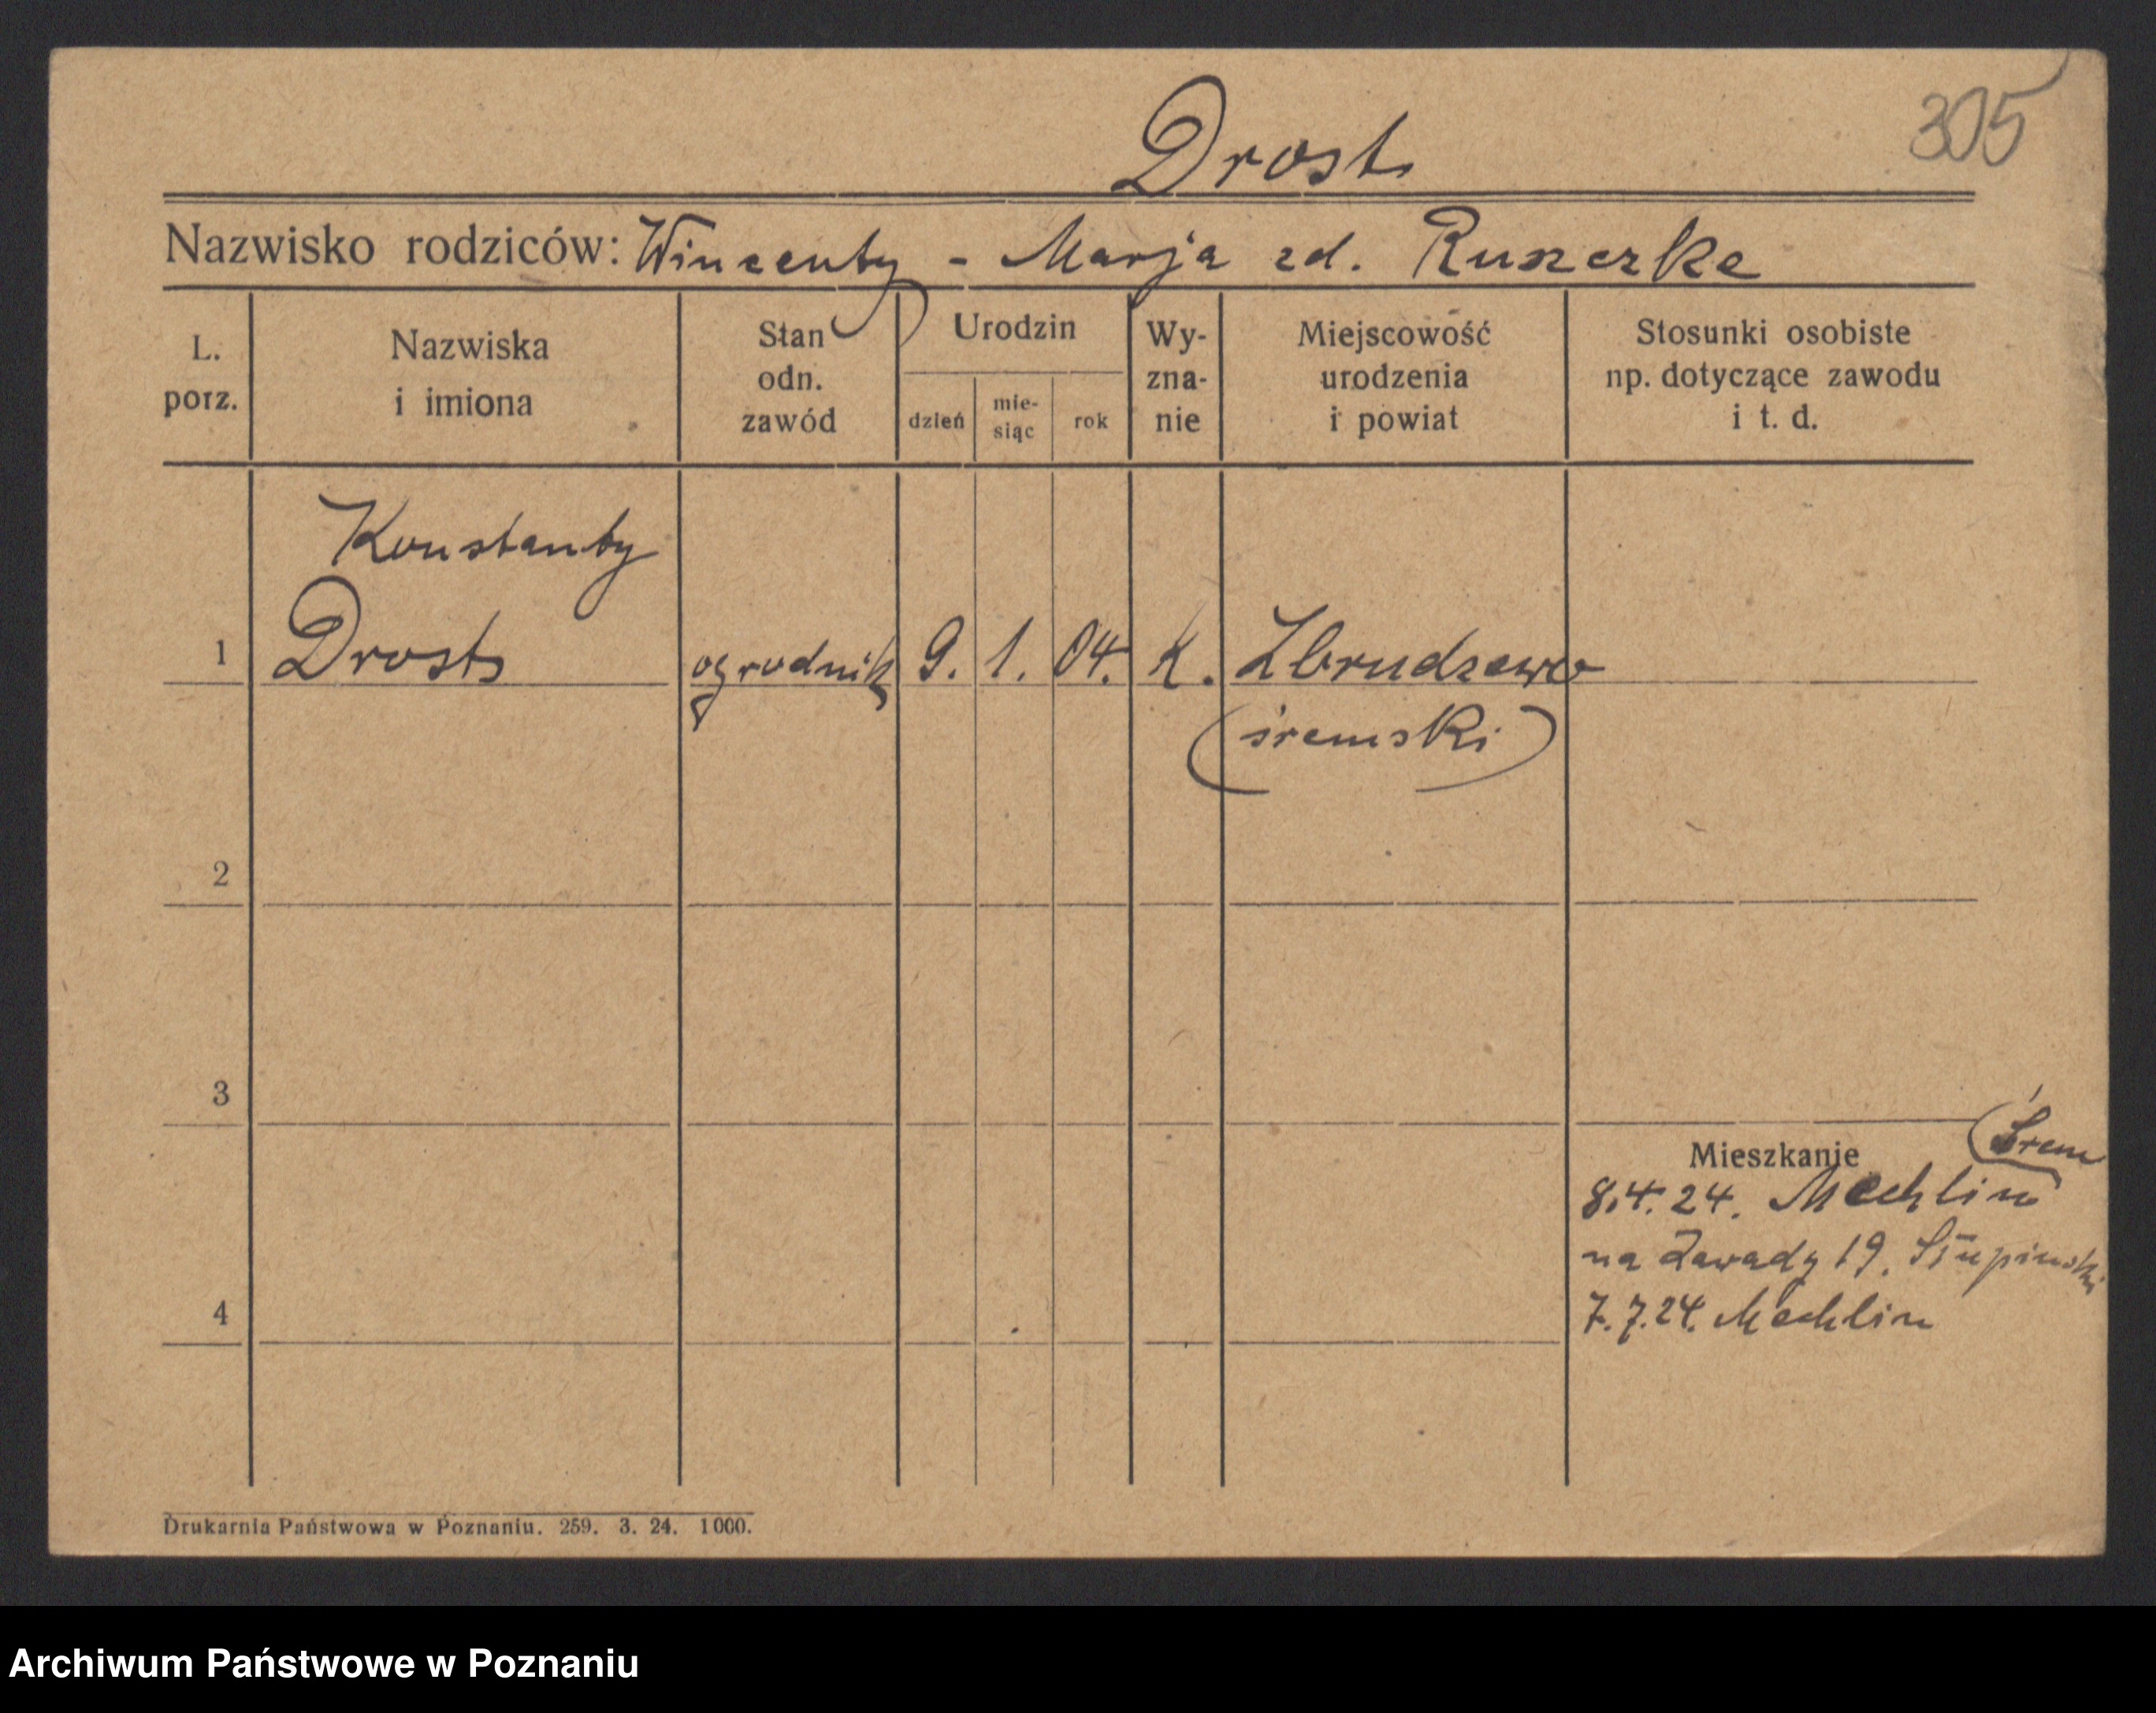 305
Drost
Nazwisko rodziców: Wincenty - Marja zd. Ruszczke
L. porz.
Nazwiska i imiona
Stan odn. zawód
Urodzin
dzień
mie-siąc
rok
Wy-zna-nie
Miejscowość urodzenia i powiat
Stosunki osobiste np. dotyczące zawodu i t. d.
Konstanty
1 Drost ogrodnik 9. 1. 04. k. Zbrudzewo
(śremski)
2
3
Mieszkanie (Śrem
8.4.24. Mechlin
na Zawady 19. Słupiński
4 7.7.24. Mechlin
Drukarnia Państwowa w Poznaniu. 259. 3. 24. 1000.
Archiwum Państwowe w Poznaniu